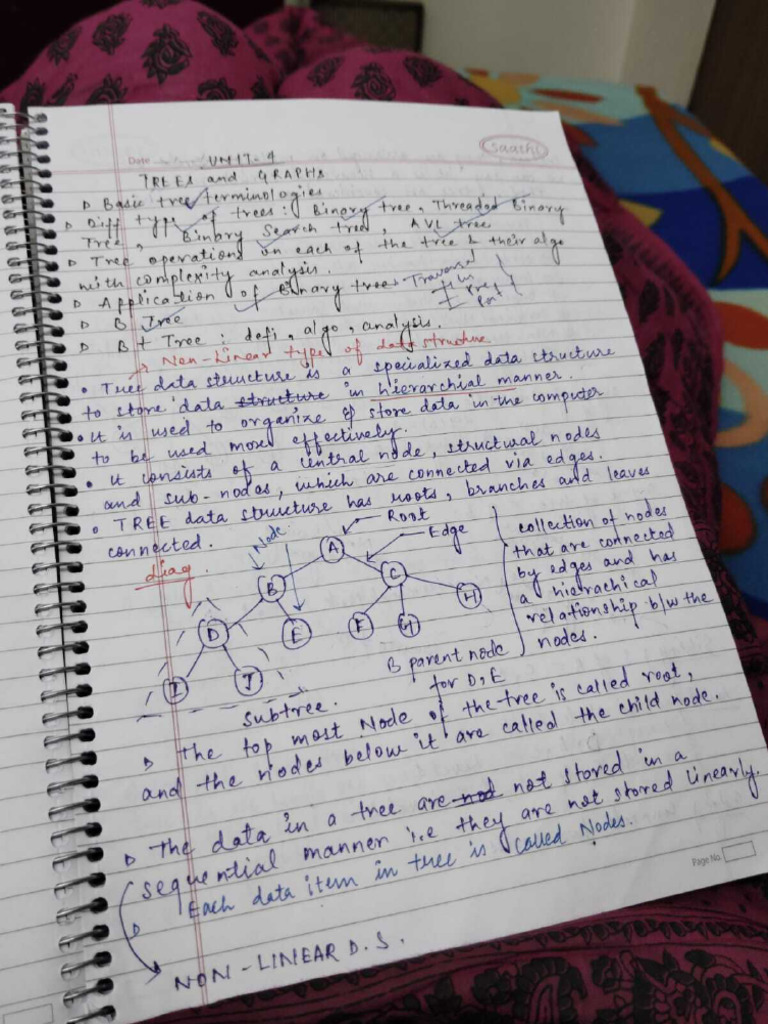 Saathi
Date
UNIT-4
TREES and GRAPHS
Basic tree terminologies
Diff type of trees: Binary tree, Threaded Binary
Tree, Binary Search tree, AVL tree
Tree operations on each of the tree & their algo
with complexity analysis.
Application of Binary tree Traversal
In
Pre
Post
B Tree
B+ Tree: defi, algo, analysis.
Non-Linear type of data structure
• Tree data structure is a specialized data structure
to store data structure in hierarchial manner.
• It is used to organize & store data in the computer
to be used more effectively.
• It consists of a central node, structural nodes
and sub-nodes, which are connected via edges.
• TREE data structure has roots, branches and leaves
connected.
diag.
Node
Root
Edge
A
B
C
D
E
F
H
I
J
collection of nodes
that are connected
by edges and has
a hierachical
relationship b/w the
nodes.
B parent node
for D, E
subtree.
The top most Node of the tree is called root,
and the nodes below it are called the child node.
The data in a tree are not not stored in a
sequential manner i.e they are not stored linearly.
Each data item in tree is called Nodes.
NON-LINEAR D.S.
Page No.